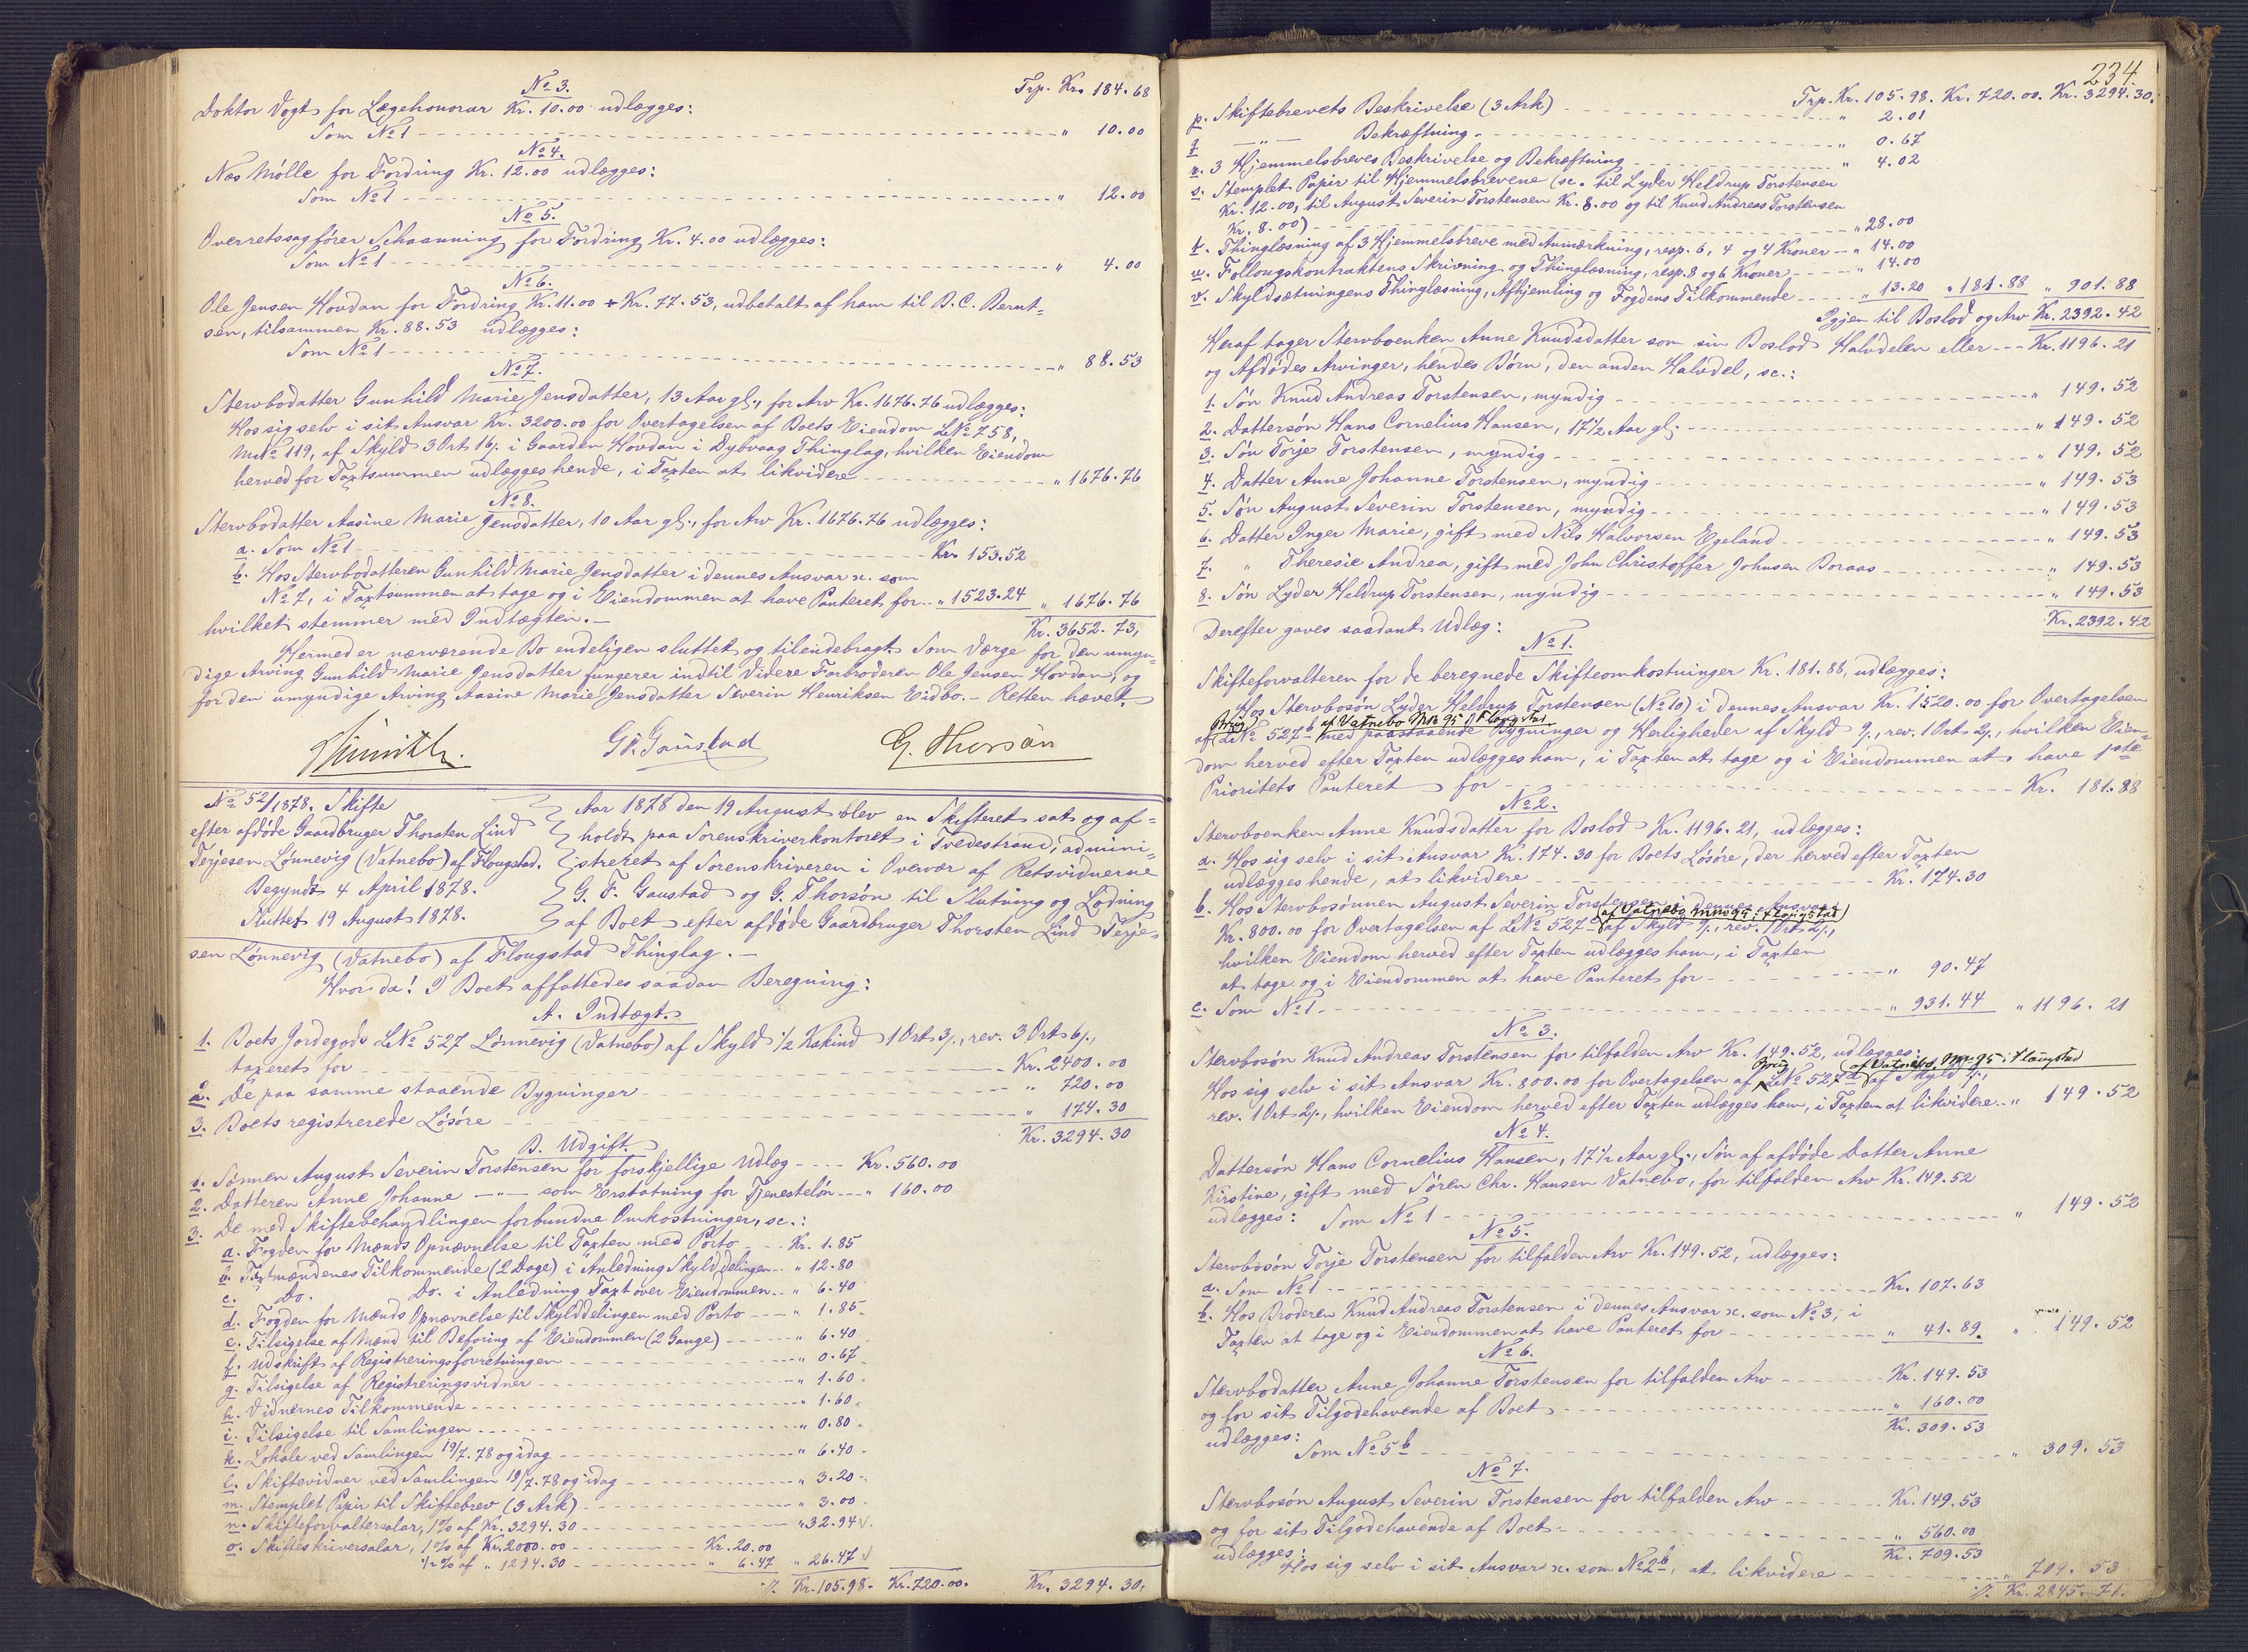 Trp. Kr. 184.68
No 3.
Doktor Vogt for Lægehonorar Kr. 10.00 udlægges:
Som No 1 " 10.00
No 4.
Næs Mølle for Fordring Kr. 12.00 udlægges:
Som No 1 " 12.00
No 5.
Overretssagfører Schaanning for Fordring Kr. 4.00 udlægges:
Som No 1 " 4.00
No 6.
Ole Jensen Hovdan for Fordring Kr. 11.00 + Kr. 77.53, udbetalt af ham til B. C. Bernt-
sen, tilsammen Kr. 88.53 udlægges:
Som No 1 " 88.53
No 7.
Stervbodatter Gunhild Marie Jensdatter, 13 Aar gl., for Arv Kr. 1676.76 udlægges:
Hos sig selv i sit Ansvar Kr. 3200.00 for Overtagelsen af Boets Eiendom LNo 758,
MNo 119, af Skyld 3 Ort 16 s. i Gaarden Hovdan i Dybvaag Thinglag, hvilken Eiendom
herved for Taxtsummen udlægges hende, i Taxten at likvidere " 1676.76
No 8.
Stervbodatter Aasine Marie Jensdatter, 10 Aar gl., for Arv Kr. 1676.76 udlægges:
a. Som No 1 Kr. 153.52
b. Hos Stervbodatteren Gunhild Marie Jensdatter i dennes Ansvar x. som
No 7, i Taxtsummen at tage og i Eiendommen at have Panteret for " 1523.24 " 1676.76
hvilket stemmer med Indtægten. Kr. 3652.73,
Hermed er nærværende Bo endeligen sluttet og tilendebragt. Som Værge for den umyn-
dige Arving Gunhild Marie Jensdatter fungerer indtil Videre Farbroderen Ole Jensen Hovdan, og
for den umyndige Arving Aasine Marie Jensdatter Severin Henriksen Eidbo. – Retten hævet.
G. F. Gaustad G. Thorsøn
No 52/1878. Skifte
efter afdøde Gaardbruger Thorsten Lind
Terjesen Lønnevig (Vatnebo) af Flougstad.
Begyndt 4 April 1878.
Sluttet 19 August 1878.
Aar 1878 den 19 August blev en Skifteret sat og af-
holdt paa Sorenskriverkontoret i Tvedestrand, admini-
streret af Sorenskriveren i Overvær af Retsvidnerne
G. F. Gaustad og G. Thorsøn til Slutning og Lodning
af Boet efter afdøde Gaardbruger Thorsten Lind Terje-
sen Lønnevig (Vatnebo) af Flougstad Thinglag. –
Hvor da! I Boet affattedes saadan Beregning:
A. Indtægt.
1. Boets Jordegods LNo 527 Lønnevig (Vatnebo) af Skyld 1/2 Kskind 1 Ort 3 s., rev. 3 Ort 6 s.,
taxeret for Kr. 2400.00
2. De paa samme staaende Bygninger " 720.00
3. Boets registrerede Løsøre " 174.30
Kr. 3294.30
B. Udgift.
1. Sønnen August Severin Torstensen for forskjellige Udlæg Kr. 560.00
2. Datteren Anne Johanne —"— som Erstatning for Tjenesteløn " 160.00
3. De med Skiftebehandlingen forbundne Omkostninger, sc.:
a. Fogden for Mænds Opnævnelse til Taxten med Porto Kr. 1.85
b. Taxtmændenes Tilkommende (2 Dage) i Anledning Skylddelingen " 12.80
c. Do. Do. i Anledning Taxt over Eiendommen " 6.40
d. Fogden for Mænds Opnævnelse til Skylddelingen med Porto " 1.85
e. Tilsigelse af Mænd til Befaring af Eiendommen (2 Gange) " 6.40
f. Udskrift af Registreringsforretningen " 0.67
g. Tilsigelse af Registreringsvidner " 1.60
h. Vidnernes Tilkommende " 1.60
i. Tilsigelse til Samlingen " 0.80
k. Lokale ved Samlingen 19/7.78 og idag " 6.40
l. Skiftevidner ved Samlingen 19/7.78 og idag " 3.20
m. Stemplet Papir til Skiftebrev (3 Ark) " 3.00
n. Skifteforvaltersalar, 1% af Kr. 3294.30 " 32.94
o. Skifteskriversalar, 1% af Kr. 2000.00 Kr. 20.00
1/2% af " 1294.30 " 6.47 " 26.47
Kr. 105.98. Kr. 720.00. Kr. 3294.30,
234.
Trp. Kr. 105.98. Kr. 720.00. Kr. 3294.30.
p. Skiftebrevets Beskrivelse (3 Ark) " 2.01
q. —"— Bekræftning " 0.67
r. 3 Hjemmelsbreves Beskrivelse og Bekræftning " 4.02
s. Stemplet Papir til Hjemmelsbrevene (sc. til Lyder Heldrup Torstensen
Kr. 12.00, til August Severin Torstensen Kr. 8.00 og til Knud Andreas Torstensen
Kr. 8.00) " 28.00
t. Thinglæsning af 3 Hjemmelsbreve med Anmærkning, resp. 6, 4 og 4 Kroner " 14.00
u. Follougskontraktens Skrivning og Thinglæsning, resp. 8 og 6 Kroner " 14.00
v. Skyldsætningens Thinglæsning, Afhjemling og Fogdens Tilkommende " 13.20 " 181.88 " 901.88
Igjen til Boslod og Arv Kr. 2392.42
Heraf tager Stervboenken Anne Knudsdatter som sin Boslod Halvdelen eller Kr. 1196.21
og Afdødes Arvinger, hendes Børn, den anden Halvdel, sc.:
1. Søn Knud Andreas Torstensen, myndig " 149.52
2. Dattersøn Hans Cornelius Hansen, 17 1/2 Aar gl. " 149.52
3. Søn Torje Torstensen, myndig " 149.52
4. Datter Anne Johanne Torstensen, myndig " 149.53
5. Søn August Severin Torstensen, myndig " 149.53
6. Datter Inger Marie, gift med Nils Halvorsen Egeland " 149.53
7. " Theresie Andrea, gift med John Christoffer Johnsen Boraas " 149.53
8. Søn Lyder Heldrup Torstensen, myndig " 149.53
Kr. 2392.42
Derefter gaves saadant Udlæg:
No 1.
Skifteforvalteren for de beregnede Skifteomkostninger Kr. 181.88, udlægges:
Hos Stervbosøn Lyder Heldrup Torstensen (No 10) i dennes Ansvar Kr. 1520.00 for Overtagelsen
Brug af Vatnebo MNo 95 i Flougstad
af LNo 527b med paastaaende Bygninger og Herligheder af Skyld 9 s., rev. 1 Ort 2 s., hvilken Eien-
dom herved efter Taxten udlægges ham, i Taxten at tage og i Eiendommen at have 1ste
Prioritets Panteret for Kr. 181.88
No 2.
Stervboenken Anne Knudsdatter for Boslod Kr. 1196.21, udlægges:
a. Hos sig selv i sit Ansvar Kr. 174.30 for Boets Løsøre, der herved efter Taxten
udlægges hende, at likvidere Kr. 174.30
b. Hos Stervbosønnen August Severin Torstensen i dennes Ansvar
(af Vatnebo MNo 95 i Flougstad)
Kr. 800.00 for Overtagelsen af LNo 527c af Skyld 9 s., rev. 1 Ort 2 s.,
hvilken Eiendom herved efter Taxten udlægges ham, i Taxten
at tage og i Eiendommen at have Panteret for " 90.47
c. Som No 1 " 931.44 " 1196.21
No 3.
Stervbosøn Knud Andreas Torstensen for tilfalden Arv Kr. 149.52, udlægges:
Brug af Vatnebo, MNo 95 i Flougstad
Hos sig selv i sit Ansvar Kr. 800.00 for Overtagelsen af LNo 527d af Skyld 9 s.,
rev. 1 Ort 2 s., hvilken Eiendom herved efter Taxten udlægges ham, i Taxten at likvidere " 149.52
No 4.
Dattersøn Hans Cornelius Hansen, 17 1/2 Aar gl., Søn af afdøde Datter Anne
Kirstine, gift med Søren Chr. Hansen Vatnebo, for tilfalden Arv Kr. 149.52
udlægges: Som No 1 " 149.52
No 5.
Stervbosøn Torje Torstensen for tilfalden Arv Kr. 149.52, udlægges:
a. Som No 1 Kr. 107.63
b. Hos Broderen Knud Andreas Torstensen i dennes Ansvar x. som No 3, i
Taxten at tage og i Eiendommen at have Panteret for " 41.89. " 149.52
No 6.
Stervbodatter Anne Johanne Torstensen for tilfalden Arv Kr. 149.53
og for sit Tilgodehavende af Boet " 160.00
udlægges: Kr. 309.53
Som No 5b " 309.53
No 7.
Stervbosøn August Severin Torstensen for tilfalden Arv Kr. 149.53
og for sit Tilgodehavende af Boet " 560.00
udlægges: Kr. 709.53
Hos sig selv i sit Ansvar x. som No 2b, at likvidere " 709.53
Kr. 2845.71.